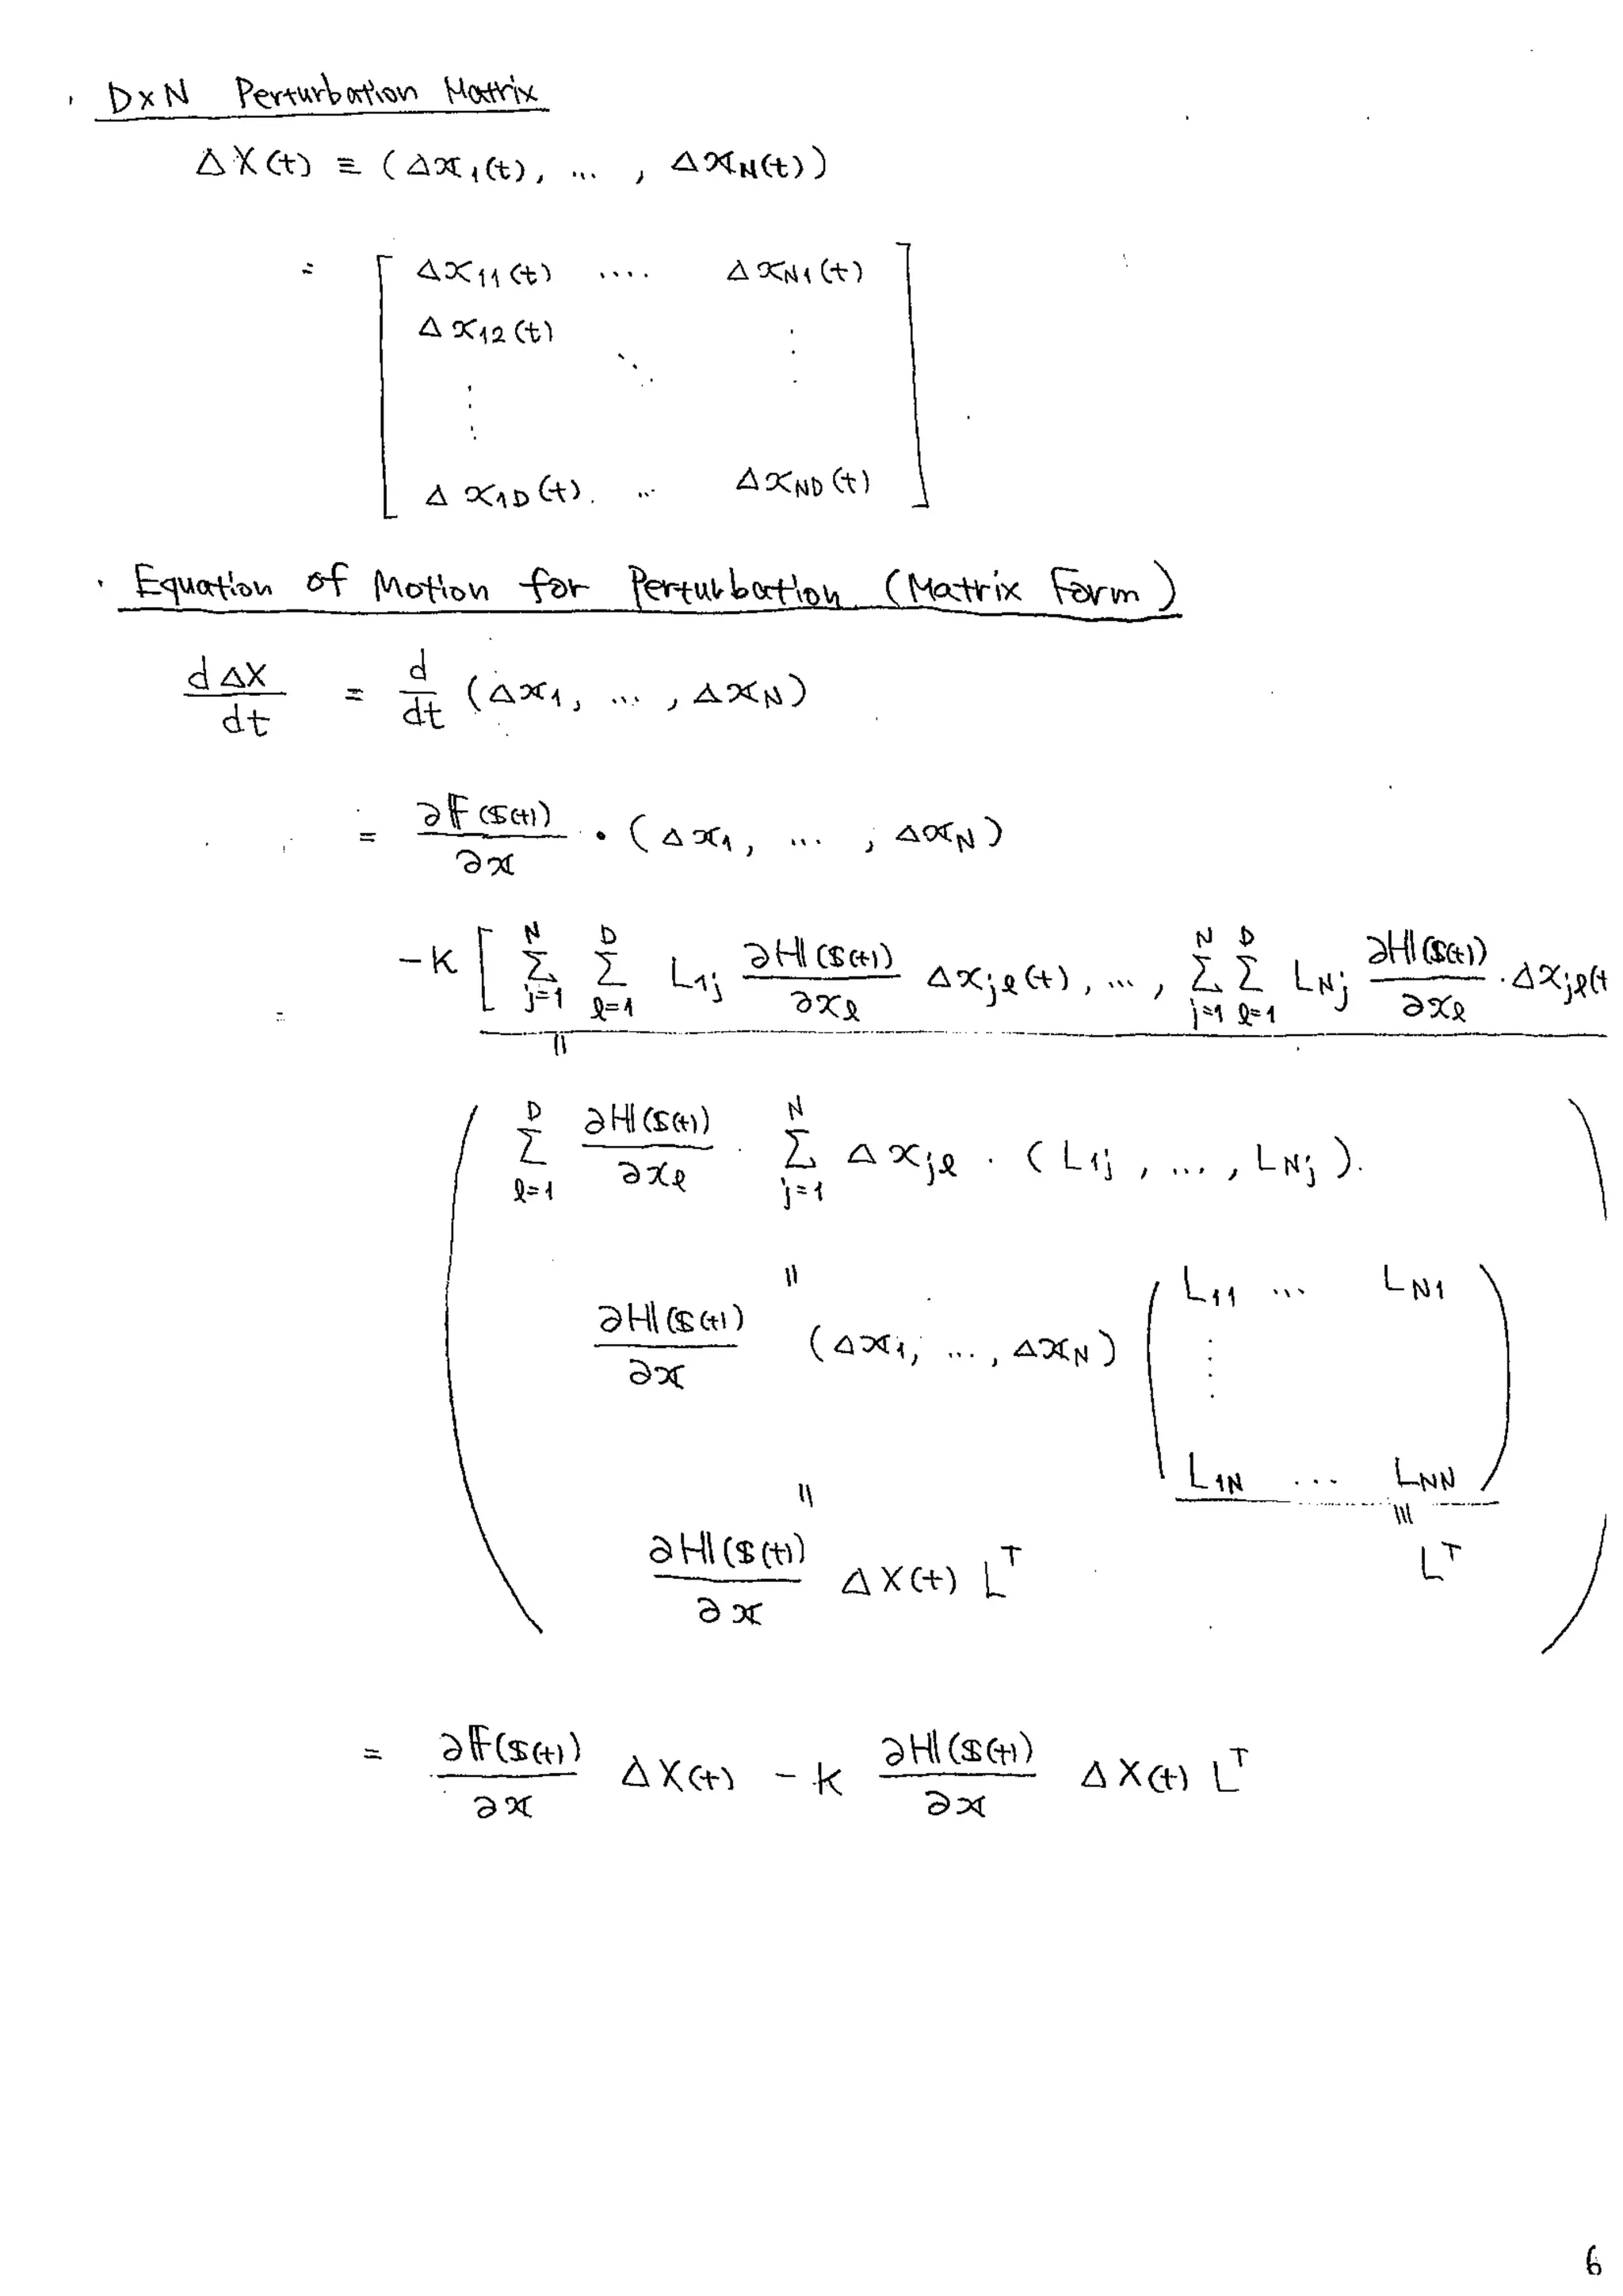 · D×N Perturbation Matrix
ΔX(t) ≡ (Δ𝕩₁(t), ... , Δ𝕩_N(t))
= [ Δx₁₁(t) .... Δx_N1(t)
Δx₁₂(t) ⋱ ⋮
⋮
Δx_1D(t) ... Δx_ND(t) ]
· Equation of Motion for Perturbation (Matrix Form)
dΔX/dt = d/dt (Δ𝕩₁, ... , Δ𝕩_N)
= ∂𝔽(𝕊(t))/∂𝕩 · (Δ𝕩₁, ... , Δ𝕩_N)
-K [ Σ_{j=1}^{N} Σ_{ℓ=1}^{D} L_1j ∂ℍ(𝕊(t))/∂x_ℓ Δx_jℓ(t), ... , Σ_{j=1}^{N} Σ_{ℓ=1}^{D} L_Nj ∂ℍ(𝕊(t))/∂x_ℓ · Δx_jℓ(t
=
||
( Σ_{ℓ=1}^{D} ∂ℍ(𝕊(t))/∂x_ℓ · Σ_{j=1}^{N} Δx_jℓ · (L_1j, ... , L_Nj).
||
∂ℍ(𝕊(t))/∂𝕩 (Δ𝕩₁, ... , Δ𝕩_N) ( L₁₁ ... L_N1
⋮
L_1N ... L_NN )
|| |||
∂ℍ(𝕊(t))/∂𝕩 ΔX(t) L^T L^T )
= ∂𝔽(𝕊(t))/∂𝕩 ΔX(t) - K ∂ℍ(𝕊(t))/∂𝕩 ΔX(t) L^T
6